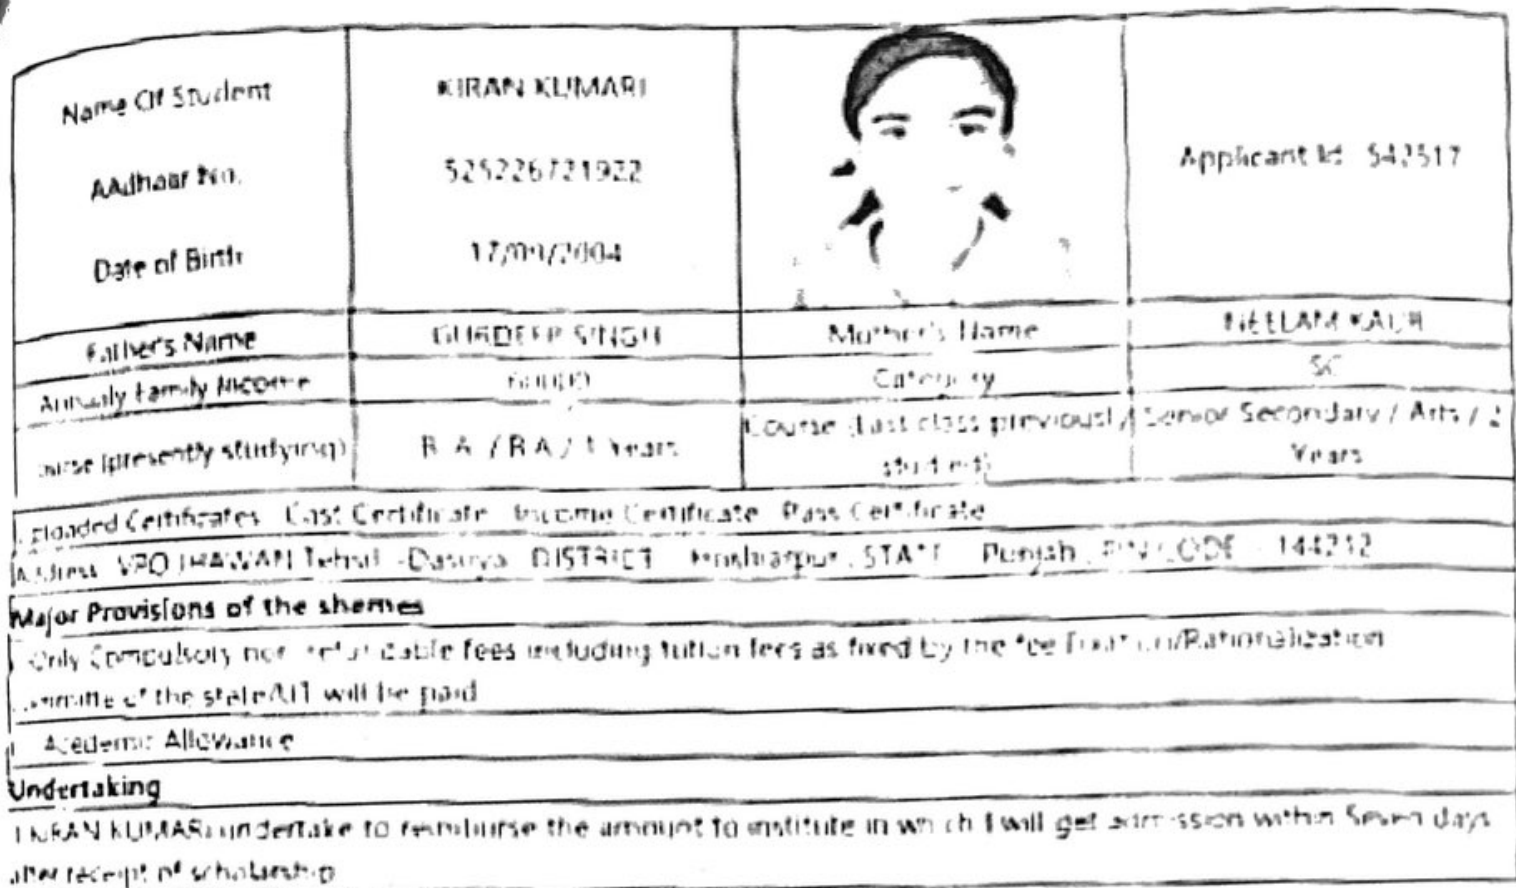 Name Of Student
KIRAN KUMARI
Applicant Id 542517
Aadhaar No.
525226721922
Date of Birth
17/09/2004
Father's Name
GURDEEP SINGH
Mother's Name
NEELAM KAUR
Annualy Family Income
Category
SC
(presently studying)
B A / B A / Years
Course (Last class previously
studied)
Senior Secondary / Arts / 2
Years
Certificates Cast Certificate Income Certificate Pass Certificate
Address VPO Tehsil - Dasuya DISTRICT Hoshiarpur, STATE Punjab, PIN CODE - 144212
Major Provisions of the shemes
Only Compulsory non refundable fees including tution fees as fixed by the fee Fixation/Rationalization
of the state/UT will be paid
Acedemic Allowance
Undertaking
I KIRAN KUMARI undertake to reimburse the amount to institute in which I will get admission within Seven days
after receipt of scholarship